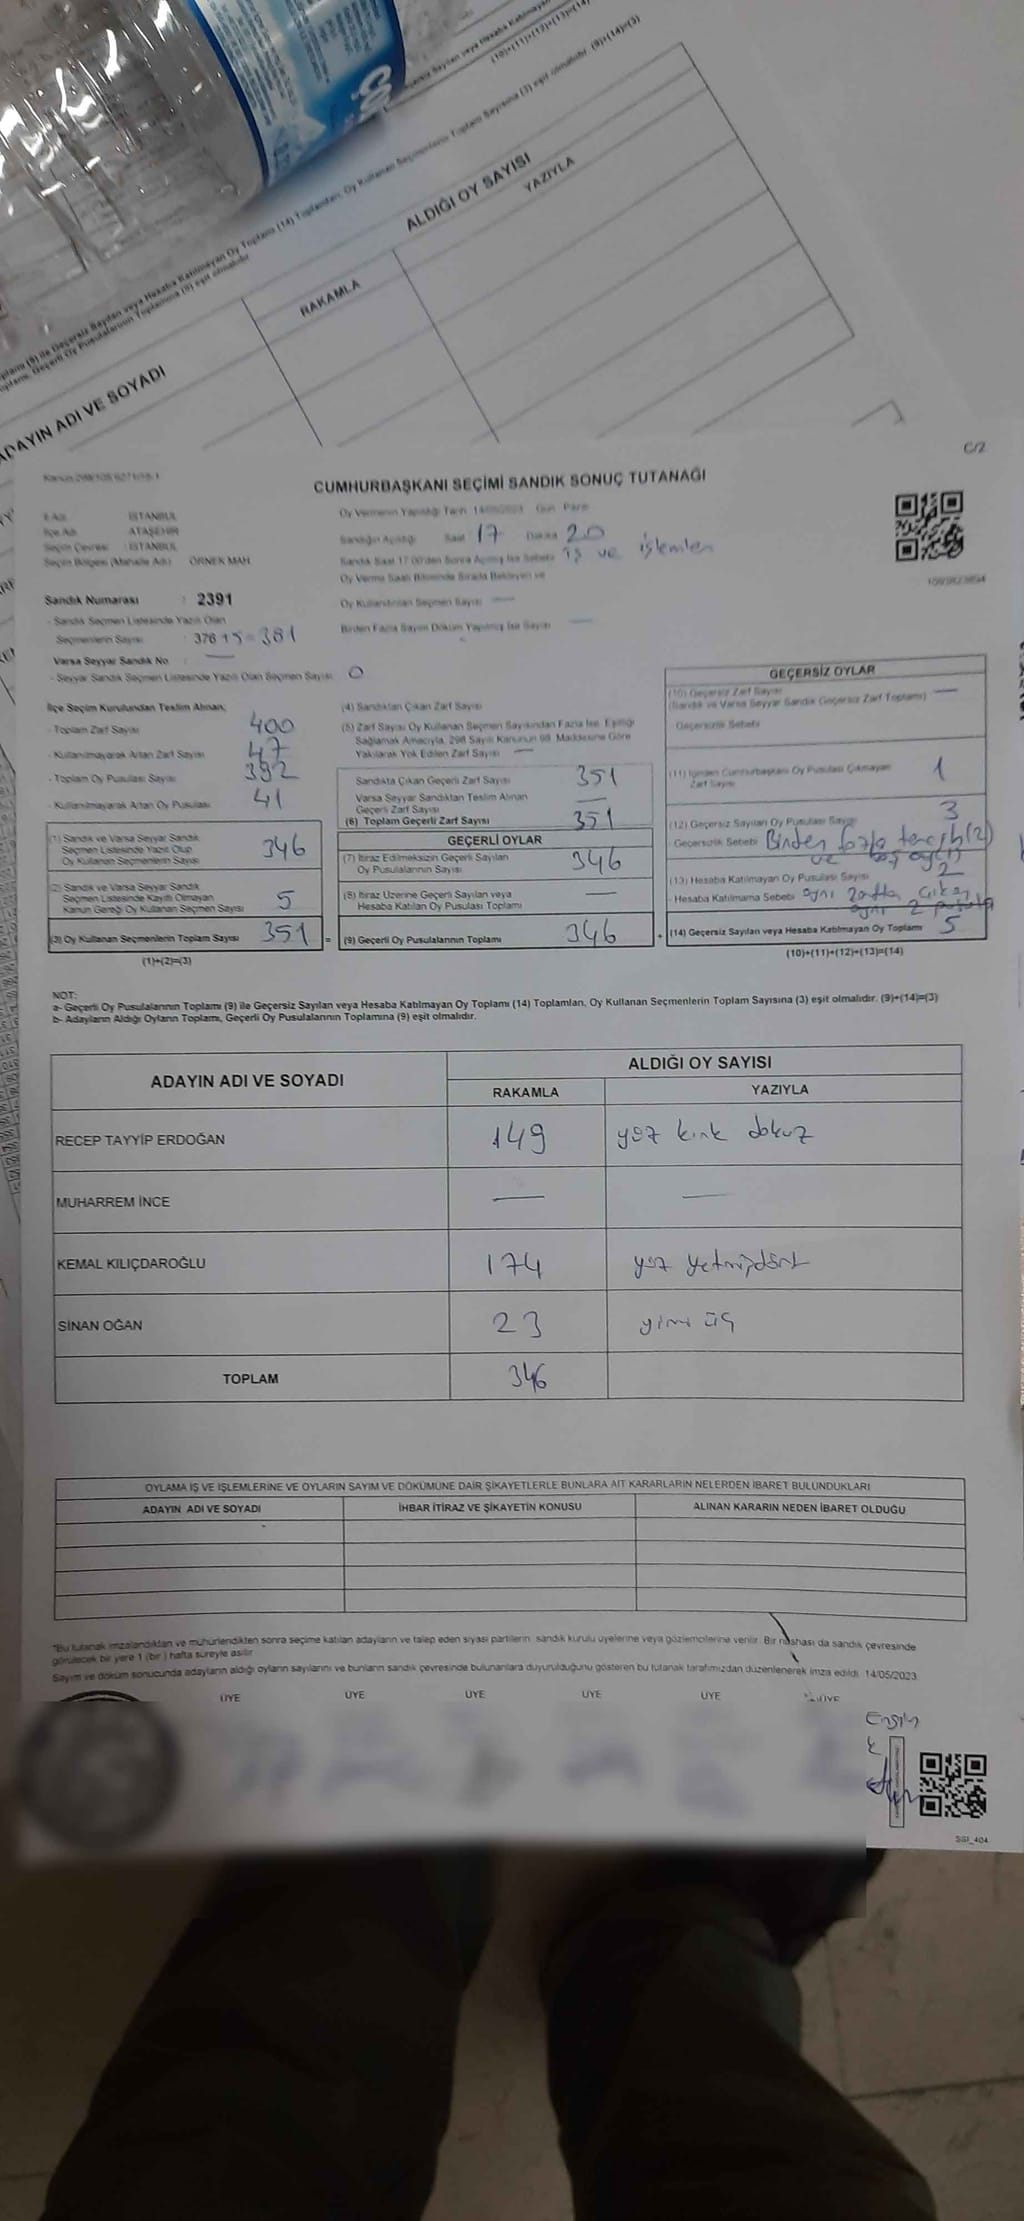 ALDIĞI OY SAYISI
RAKAMLA
YAZIYLA
ADAYIN ADI VE SOYADI
C/2
CUMHURBAŞKANI SEÇİMİ SANDIK SONUÇ TUTANAĞI
İl Adı : İSTANBUL
İlçe Adı : ATAŞEHİR
Seçim Çevresi : İSTANBUL
Seçim Bölgesi (Mahalle Adı) ÖRNEK MAH.
Sandık Numarası : 2391
- Sandık Seçmen Listesinde Yazılı Olan
Seçmenlerin Sayısı : 376 + 5 = 381
- Varsa Seyyar Sandık No —
- Seyyar Sandık Seçmen Listesinde Yazılı Olan Seçmen Sayısı : 0
Oy Vermenin Yapıldığı Tarih 14/05/2023 Gün Pazar
Sandığın Açıldığı Saat 17 Dakika 20
Sandık Saat 17.00'den Sonra Açılmış İse Sebebi iş ve işlemler
Oy Verme Saati Bitiminde Sırada Bekleyen ve
Oy Kullandırılan Seçmen Sayısı —
Birden Fazla Sayım Döküm Yapılmış İse Sayısı —
İlçe Seçim Kurulundan Teslim Alınan;
- Toplam Zarf Sayısı 400
- Kullanılmayarak Artan Zarf Sayısı 47
- Toplam Oy Pusulası Sayısı 392
- Kullanılmayarak Artan Oy Pusulası 41
(1) Sandık ve Varsa Seyyar Sandık
Seçmen Listesinde Yazılı Olup
Oy Kullanan Seçmenlerin Sayısı 346
(2) Sandık ve Varsa Seyyar Sandık
Seçmen Listesinde Kayıtlı Olmayan
Kanun Gereği Oy Kullanan Seçmen Sayısı 5
(3) Oy Kullanan Seçmenlerin Toplam Sayısı 351
(1)+(2)=(3)
(4) Sandıktan Çıkan Zarf Sayısı
(5) Zarf Sayısı Oy Kullanan Seçmen Sayısından Fazla İse, Eşitliği
Sağlamak Amacıyla, 298 Sayılı Kanunun 98. Maddesine Göre
Yakılarak Yok Edilen Zarf Sayısı —
Sandıkta Çıkan Geçerli Zarf Sayısı 351
Varsa Seyyar Sandıktan Teslim Alınan
Geçerli Zarf Sayısı —
(6) Toplam Geçerli Zarf Sayısı 351
GEÇERLİ OYLAR
(7) İtiraz Edilmeksizin Geçerli Sayılan
Oy Pusulalarının Sayısı 346
(8) İtiraz Üzerine Geçerli Sayılan veya
Hesaba Katılan Oy Pusulası Toplamı —
= (9) Geçerli Oy Pusulalarının Toplamı 346
GEÇERSİZ OYLAR
(10) Geçersiz Zarf Sayısı —
(Sandık ve Varsa Seyyar Sandık Geçersiz Zarf Toplamı)
Geçersizlik Sebebi
(11) İçinden Cumhurbaşkanı Oy Pusulası Çıkmayan
Zarf Sayısı 1
(12) Geçersiz Sayılan Oy Pusulası Sayısı 3
Geçersizlik Sebebi Birden fazla tercih (2)
ve boş oy(1)
(13) Hesaba Katılmayan Oy Pusulası Sayısı 2
- Hesaba Katılmama Sebebi aynı zarftan çıkan
aynı 2 pusula
+ (14) Geçersiz Sayılan veya Hesaba Katılmayan Oy Toplamı 5
(10)+(11)+(12)+(13)=(14)
NOT:
a- Geçerli Oy Pusulalarının Toplamı (9) ile Geçersiz Sayılan veya Hesaba Katılmayan Oy Toplamı (14) Toplamları, Oy Kullanan Seçmenlerin Toplam Sayısına (3) eşit olmalıdır. (9)+(14)=(3)
b- Adayların Aldığı Oyların Toplamı, Geçerli Oy Pusulalarının Toplamına (9) eşit olmalıdır.
ADAYIN ADI VE SOYADI
ALDIĞI OY SAYISI
RAKAMLA YAZIYLA
RECEP TAYYİP ERDOĞAN 149 yüz kırk dokuz
MUHARREM İNCE — —
KEMAL KILIÇDAROĞLU 174 yüz yetmişdört
SİNAN OĞAN 23 yirmi üç
TOPLAM 346
OYLAMA İŞ VE İŞLEMLERİNE VE OYLARIN SAYIM VE DÖKÜMÜNE DAİR ŞİKAYETLERLE BUNLARA AİT KARARLARIN NELERDEN İBARET BULUNDUKLARI
ADAYIN ADI VE SOYADI İHBAR İTİRAZ VE ŞİKAYETİN KONUSU ALINAN KARARIN NEDEN İBARET OLDUĞU
*Bu tutanak imzalandıktan ve mühürlendikten sonra seçime katılan adayların ve talep eden siyasi partilerin, sandık kurulu üyelerine veya gözlemcilerine verilir. Bir nüshası da sandık çevresinde
görülecek bir yere 1 (bir) hafta süreyle asılır.
Sayım ve döküm sonucunda adayların aldığı oyların sayılarını ve bunların sandık çevresinde bulunanlara duyurulduğunu gösteren bu tutanak tarafımızdan düzenlenerek imza edildi. 14/05/2023
ÜYE ÜYE ÜYE ÜYE ÜYE ÜYE
Engin
SGI_404